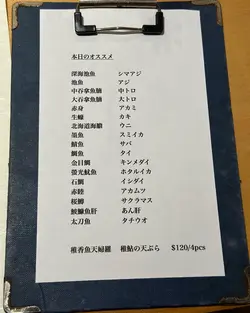 本日のオススメ
深海池魚 シマアジ
池魚 アジ
中吞拿魚腩 中トロ
大吞拿魚腩 大トロ
赤身 アカミ
生蠔 カキ
北海道海膽 ウニ
墨魚 スミイカ
鯖魚 サバ
鯛魚 タイ
金目鯛 キンメダイ
螢光魷魚 ホタルイカ
石鯛 イシダイ
赤鯥 アカムツ
桜鱒 サクラマス
鮟鱇魚肝 あん肝
太刀魚 タチウオ
稚香魚天婦羅 稚鮎の天ぷら $120/4pcs